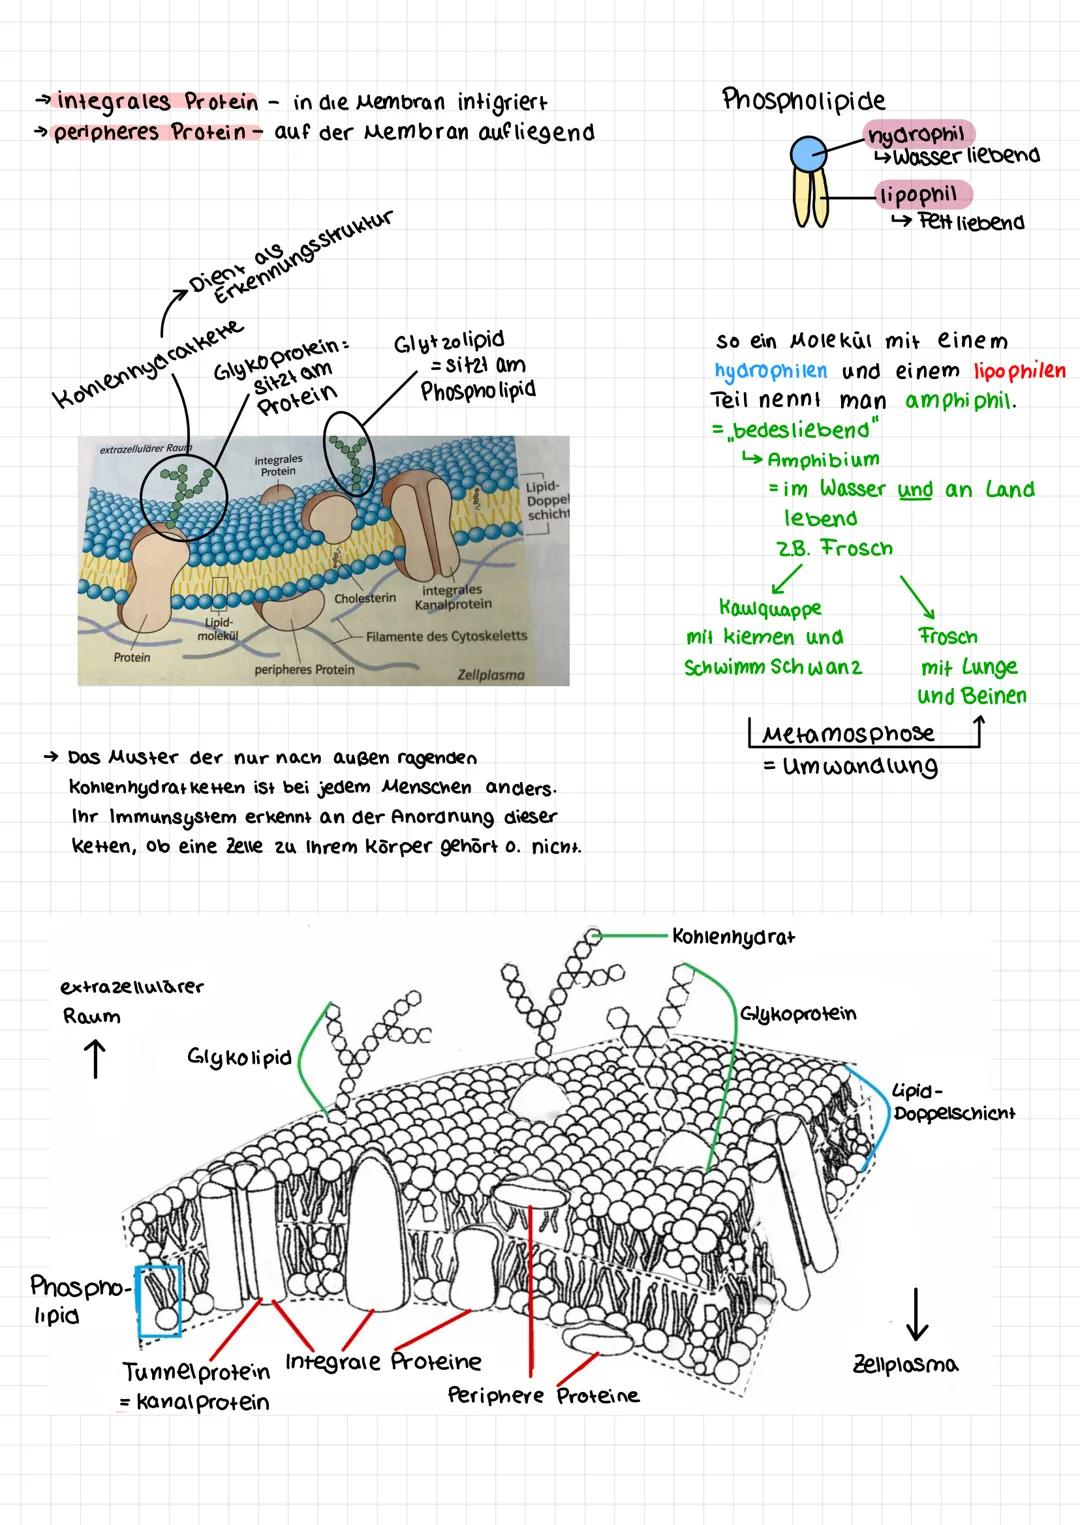 → integrales Protein - in die Membran intigriert
→ peripheres Protein - auf der Membran aufliegend
Phospholipide
hydrophil
↳ Wasser liebend
lipophil
↳ Fett liebend
Dient als
Erkennungsstruktur
Kohlenhydratkette
Glykoprotein:
sitzt am
Protein
Glytzolipid
= sitzt am
Phospholipid
extrazellulärer Raum
integrales
Protein
Lipid-
Doppel
schicht
Cholesterin
integrales
Kanalprotein
Lipid-
molekül
Filamente des Cytoskeletts
Protein
peripheres Protein
Zellplasma
so ein Molekül mit einem
hydrophilen und einem lipophilen
Teil nennt man amphiphil.
= „bedesliebend"
↳ Amphibium
= im Wasser und an Land
lebend
z.B. Frosch
Kaulquappe
mit kiemen und
Schwimmschwanz
Frosch
mit Lunge
und Beinen
Metamosphose
= Umwandlung
→ Das Muster der nur nach außen ragenden
Kohlenhydratketten ist bei jedem Menschen anders.
Ihr Immunsystem erkennt an der Anordnung dieser
Ketten, ob eine Zelle zu Ihrem Körper gehört o. nicht.
Kohlenhydrat
extrazellulärer
Raum
Glykoprotein
Glykolipid
Lipid-
Doppelschicht
Phospho-
lipid
Zellplasma
Tunnelprotein
= Kanalprotein
Integrale Proteine
Periphere Proteine